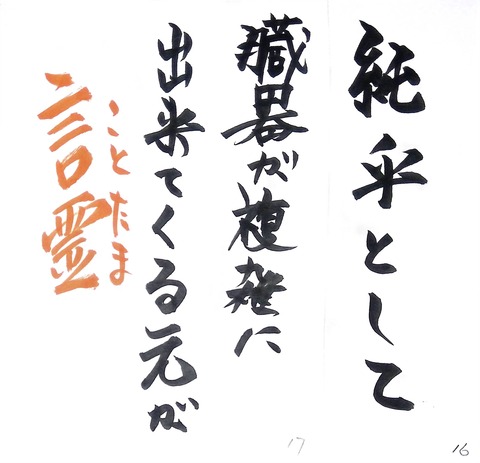 純乎として
臓器が複雑に
出来てくる元が
ことたま
言霊
17
16